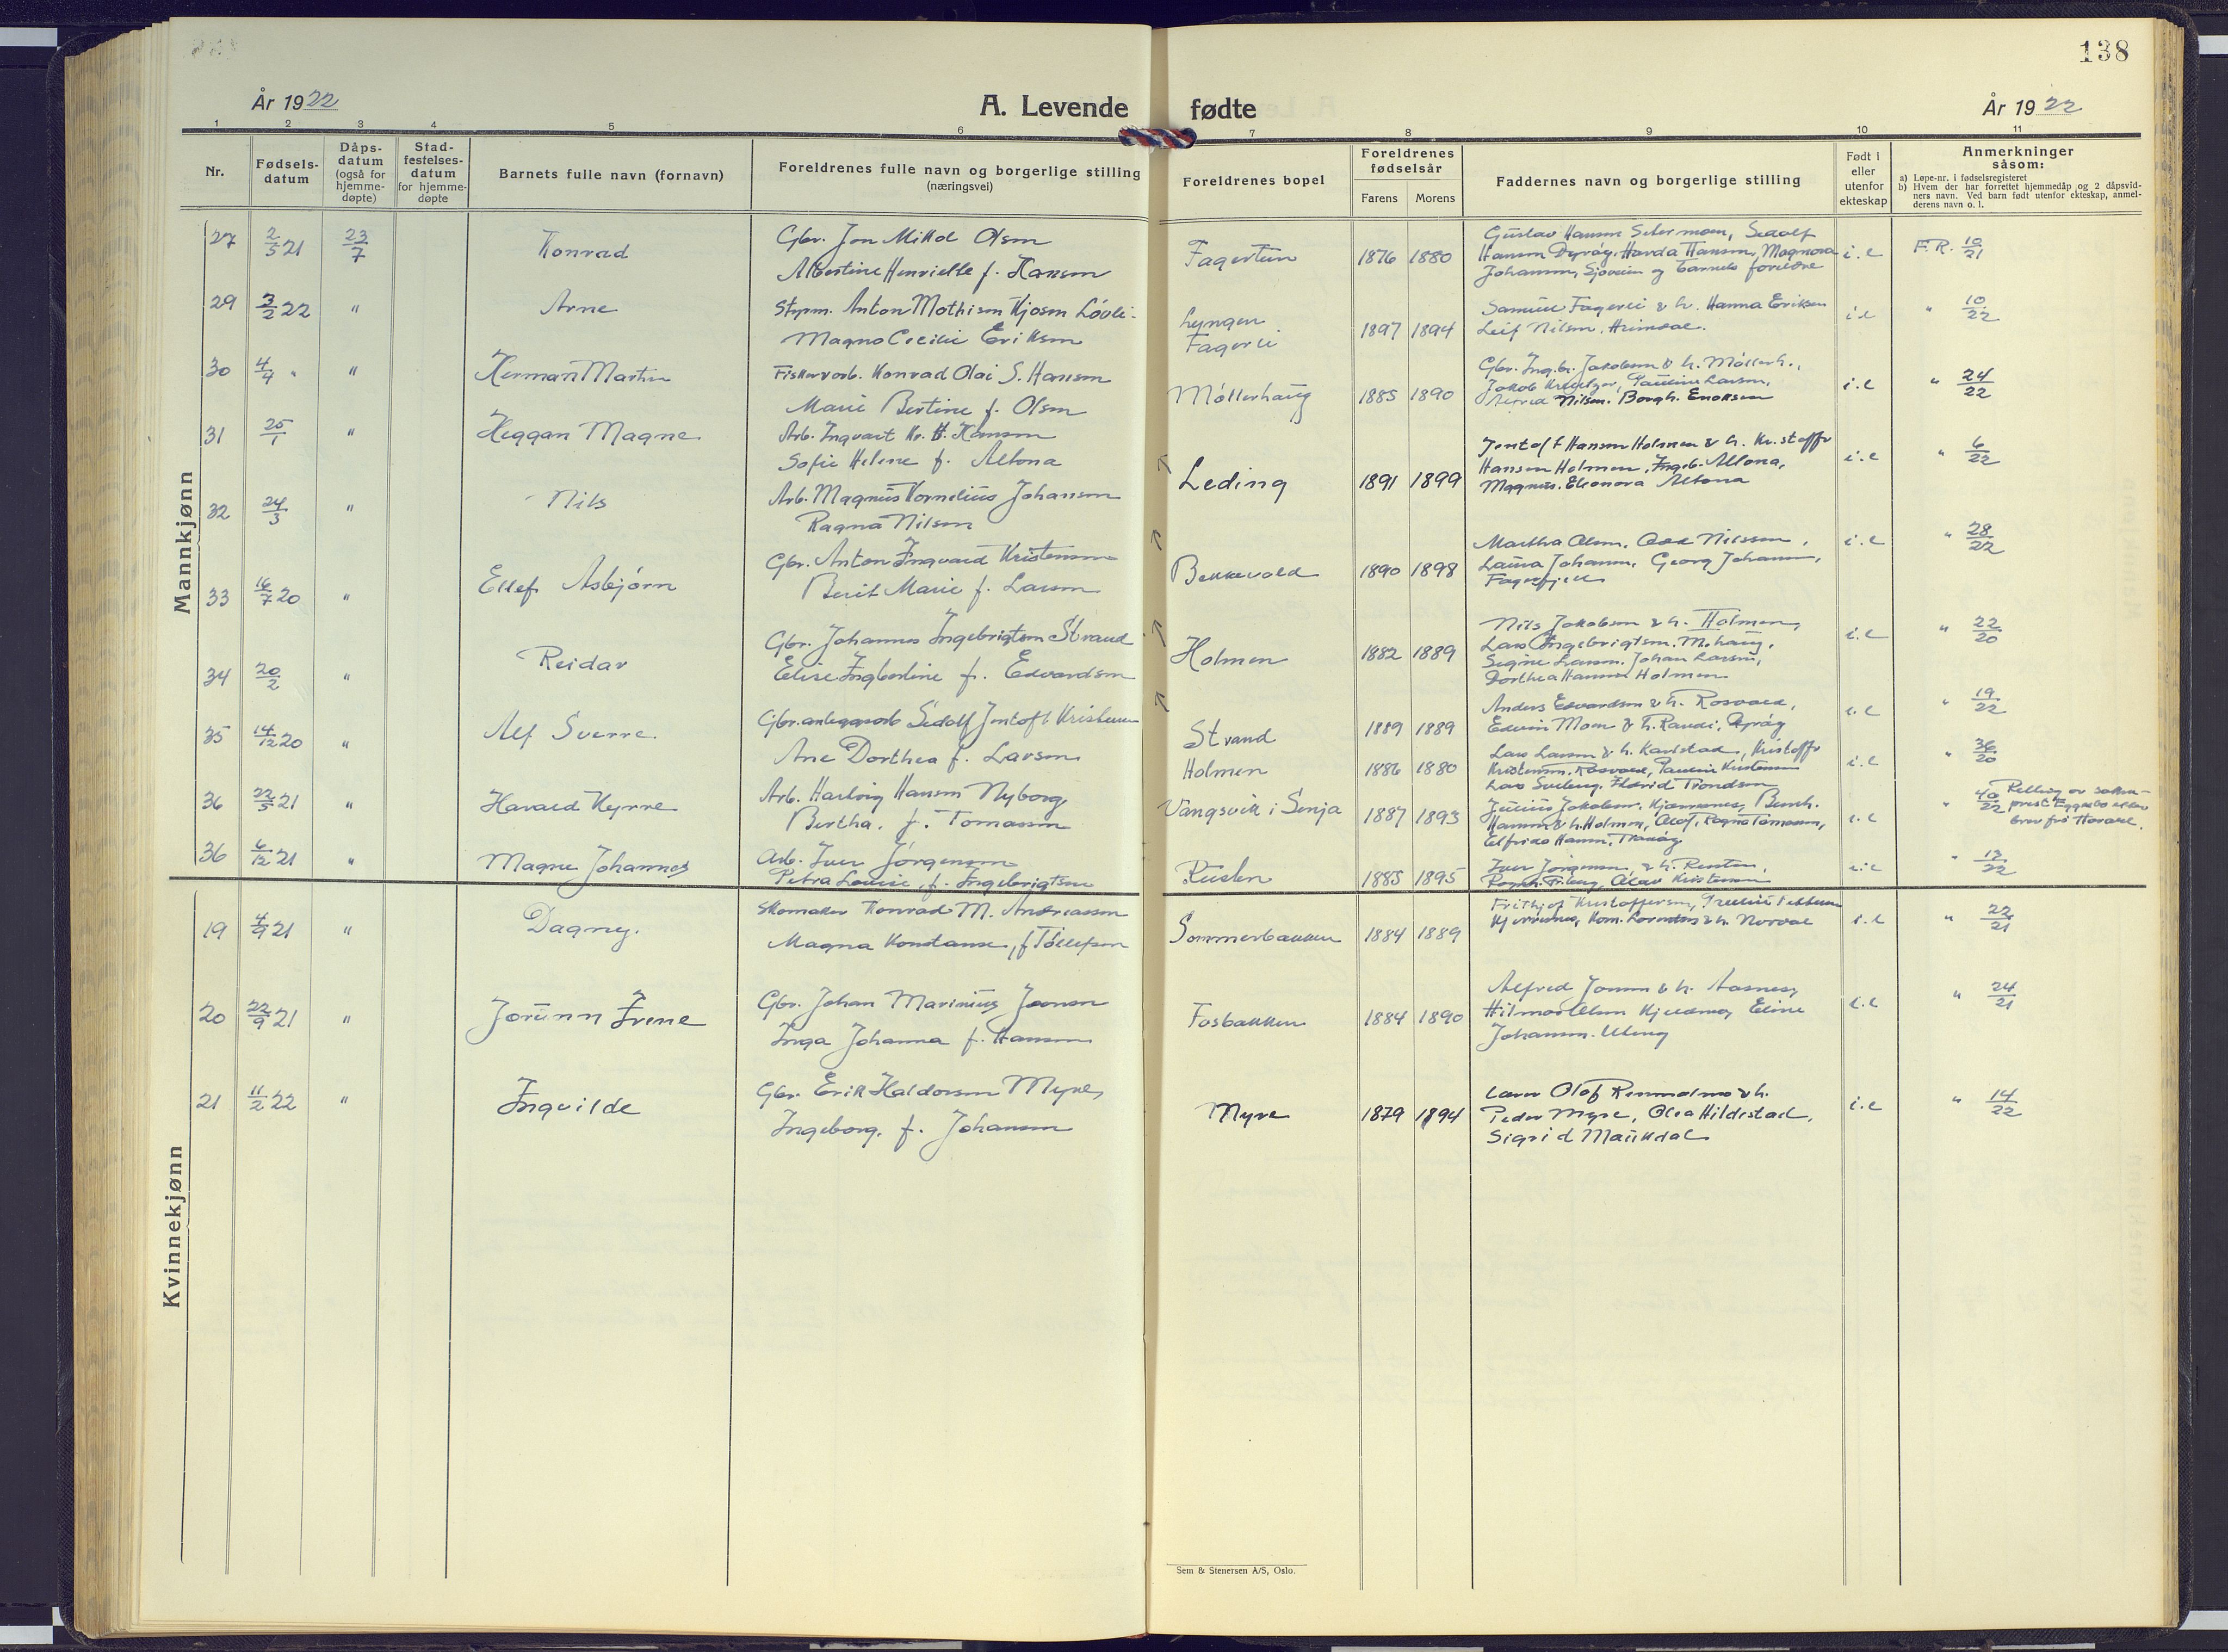 138
År 1922
A. Levende fødte
År 1922
1 2 3 4 5 6 7 8 9 10 11
Nr.
Fødsels-
datum
Dåps-
datum
(også for
hjemme-
døpte)
Stad-
festelses-
datum
for hjemme-
døpte
Barnets fulle navn (fornavn)
Foreldrenes fulle navn og borgerlige stilling
(næringsvei)
Foreldrenes bopel
Foreldrenes
fødselsår
Farens Morens
Faddernes navn og borgerlige stilling
Født i
eller
utenfor
ekteskap
Anmerkninger
såsom:
a) Løpe-nr. i fødselsregisteret
b) Hvem der har forrettet hjemmedåp og 2 dåpsvid-
ners navn. Ved barn født utenfor ekteskap, anmel-
derens navn o. l.
Mannkjønn
27 2/5 21 23/7 Konrad
Gbr. Jon Mikal Olsen
Albertine Henriette f. Hansen
Fagertun 1876 1880
Hansen Dyrøy, Harda Hansen, Magnora
Johansen, Sjøveien og barnets foreldre
i.e F.R. 10/21
29 3/2 22 " Arne
Styrm. Anton Mathisen Kjosen Løvli-
Magna Cecilie Eriksen
Lyngen
Fagerli 1897 1894
Samuel Fagerli & h. Hanna Eriksen
Leif Nilsen
i.e " 10/22
30 4/4 " " Herman Martin
Fiskerarb. Konrad Olai S. Hansen
Marie Bertine f. Olsen
Møllerhaug 1885 1890
Gbr. Ingbr. Jakobsen & h. Møllerh.,
Pauline Larsen,
Alfred Nilsen. Borgh. Enoksen
i.e " 24/22
31 25/1 " Heggan Magne
Arb. Ingvart Kr. H. Hansen
Sofie Helene f. Altona
Leding 1891 1899
Jentoft Hansen Holmen & h. Kristoffer
Hansen Holmen, Ingeb. Altona,
Magnus. Eleonora Altona
i.e " 6/22
32 24/3 " Nils
Arb. Magnus Kornelius Johansen
Ragna Nilsen
Bekkevold 1890 1898
Martha Olsen, Odd Nilssen,
Laura Johansen, Georg Johansen,
Fagerfjell
i.e " 28/22
33 16/7 20 " Ellef Asbjørn
Gbr. Anton Ingvald Kristensen
Berit Marie f. Larsen
Holmen 1882 1889
Nils Jakobsen & h. Holmen,
Lars Ingebrigtsen. M.haug,
Signe Larsen. Johan Larsen,
Dorthea Hansen Holmen
i.e " 22/20
34 20/2 " Reidar
Gbr. Johannes Ingebrigtsen Strand
Elise Ingborline f. Edvardsen
Strand 1889 1889
Anders Edvardsen & h. Rosvold,
Edvin Moen & h. Randi, Dyrøy
i.e " 19/22
35 14/12 20 " Alf Sverre
Gbr. anleggsarb Sedolf Jentoft Kristensen
Ane Dorthea f. Larsen
Holmen 1886 1880
Lars Larsen & h. Karlstad, Kristoffer
Kristensen, Rosvold, Pauline Kristensen
i.e " 36/20
36 22/5 21 " Harald Kyrre
Arb. Hartvig Hansen Nyborg,
Bertha, f. Tomassen
Vangsvik i Senja 1887 1893
Julius Jakobsen, Kjærnenes, Bernh.
Hansen & h. Holmen, Olof, Ragna Tomassen,
Elfrida Hansen
i.e " 40/22 Retting av sokne-
prest Eggebø etter
brev frå Harald.
36 6/12 21 " Magne Johannes
Arb. Iver Jørgensen
Petra Louise, f. Ingebrigtsen
1885 1895
Iver Jørgensen & h.
Olav Kristensen
i.e " 13/22
Kvinnekjønn
19 4/9 21 " Dagny.
Skomaker Konrad M. Andreassen
Magna Konstanse, f. Tollefsen
Sommerbakken 1884 1889
Frithjof Kristoffersen,
i.e " 22/21
20 22/9 21 " Jorunn Irene
Gbr. Johan Marinius Jensen
Inga Johanna f. Hansen
Fosbakken 1884 1890
Alfred Jensen & h. Aasnes,
Hilmar Olsen Eline
Johansen.
i.e " 24/21
21 11/2 22 " Ingvilde
Gbr. Erik Haldorsen Myre,
Ingeborg, f. Johansen
Myre 1879 1894
Lærer Olof Renmælmo & h.
Peder Myre, Olea Hildestad,
Sigrid Maukdal
i.e " 14/22
Sem & Stenersen A/S, Oslo.